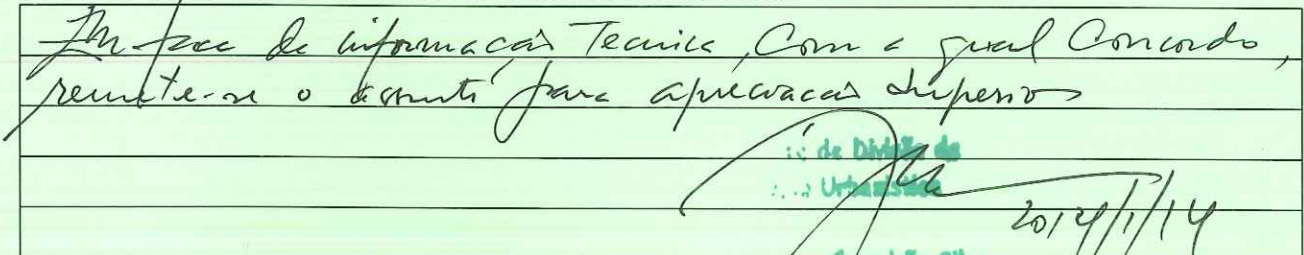 Em face da informação Tecnica, Com a qual Concordo,
remete-se o assunto para apreciação Superior
de Divisão de
Urbanística
2014/1/14